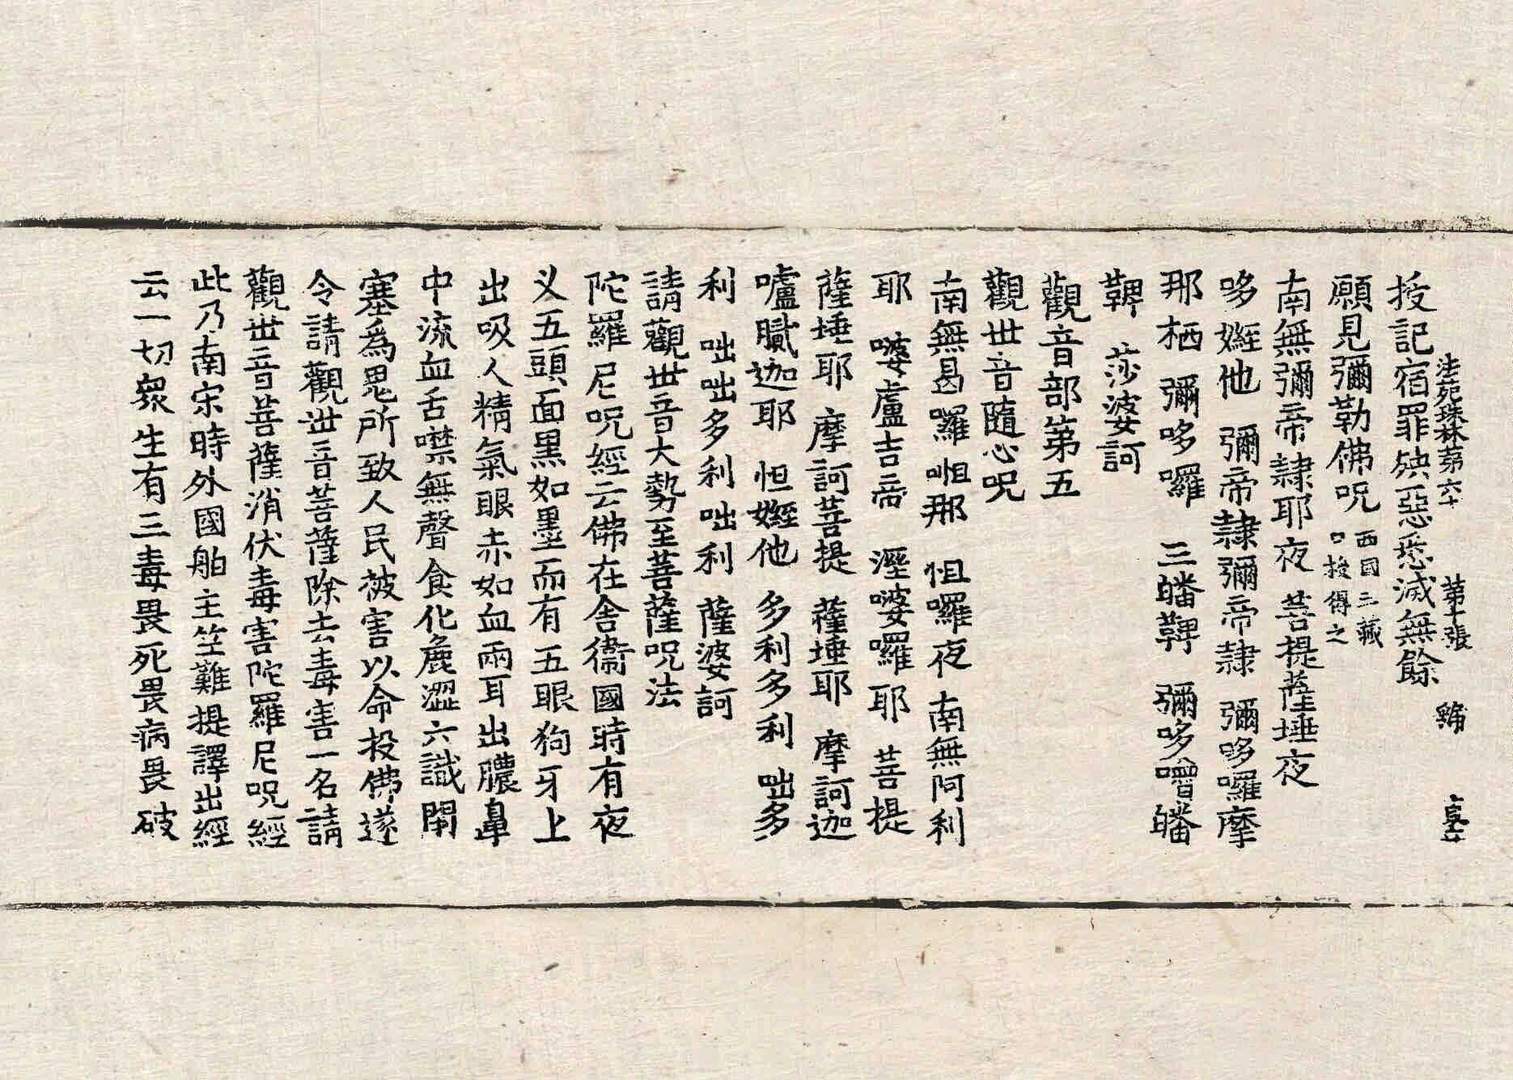 法苑珠林第六十 第十張
授記宿罪殃惡悉滅無餘
願見彌勒佛呪 西國三藏口授得之
南無彌帝隷耶夜 菩提薩埵夜
哆姪他 彌帝隷彌帝隷 彌哆囉摩
那栖 彌哆囉 三皤鞞 彌哆噌皤
鞞 莎婆訶
觀音部第五
觀世音隨心呪
南無曷囉怛那 怛囉夜 南無阿利
耶 婆盧吉帝 溼婆囉耶 菩提
薩埵耶 摩訶菩提 薩埵耶 摩訶迦
嚧膩迦耶 怛姪他 多利多利 咄多
利 咄咄多利咄利 薩婆訶
請觀世音大勢至菩薩呪法
陀羅尼呪經云佛在舍衛國時有夜
义五頭面黑如墨而有五眼狗牙上
出吸人精氣眼赤如血兩耳出膿鼻
中流血舌噤無聲食化麁澀六識閇
塞為鬼所致人民被害以命投佛遂
令請觀世音菩薩除去毒害一名請
觀世音菩薩消伏毒害陀羅尼呪經
此乃南宋時外國舶主竺難提譯出經
云一切衆生有三毒畏死畏病畏破